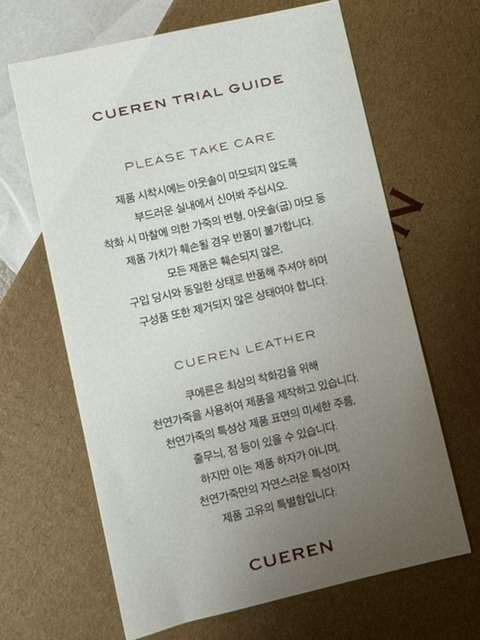 CUEREN TRIAL GUIDE
PLEASE TAKE CARE
제품 시착시에는 아웃솔이 마모되지 않도록
부드러운 실내에서 신어봐 주십시오.
착화 시 마찰에 의한 가죽의 변형, 아웃솔(굽) 마모 등
제품 가치가 훼손될 경우 반품이 불가합니다.
모든 제품은 훼손되지 않은,
구입 당시와 동일한 상태로 반품해 주셔야 하며
구성품 또한 제거되지 않은 상태여야 합니다.
CUEREN LEATHER
쿠에른은 최상의 착화감을 위해
천연가죽을 사용하여 제품을 제작하고 있습니다.
천연가죽의 특성상 제품 표면의 미세한 주름,
줄무늬, 점 등이 있을 수 있습니다.
하지만 이는 제품 하자가 아니며,
천연가죽만의 자연스러운 특성이자
제품 고유의 특별함입니다.
CUEREN